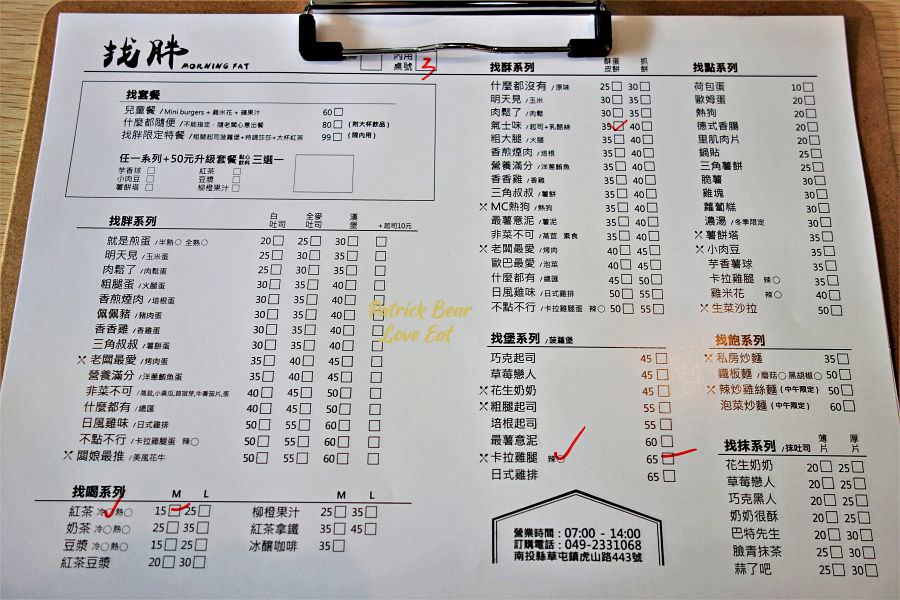 找胖 MORNING FAT
內用
桌號 3
找套餐
兒童餐 /Mini burgers + 雞米花 + 蘋果汁 60□
什麼都隨便 /不能指定，隨老闆心意出餐 80□ (附大杯飲品)
找胖限定特餐 /粗腿起司菠蘿堡+特調莎莎+大杯紅茶 99□ (限內用)
任一系列+50元升級套餐 點心 飲料 三選一
芋香球□ 紅茶□
小肉豆□ 豆漿□
薯餅塔□ 柳橙果汁□
找胖系列 白吐司 全麥吐司 漢堡 +起司10元
就是煎蛋 /半熟○ 全熟○ 20□ 25□ 30□ □
明天見 /玉米蛋 25□ 30□ 35□ □
肉鬆了 /肉鬆蛋 25□ 30□ 35□ □
粗腿蛋 /火腿蛋 30□ 35□ 40□ □
香煎煙肉 /培根蛋 30□ 35□ 40□ □
佩佩豬 /豬肉蛋 30□ 35□ 40□ □
香香雞 /香雞蛋 30□ 35□ 40□ □
三角叔叔 /薯餅蛋 30□ 35□ 40□ □
老闆最愛 /烤肉蛋 35□ 40□ 45□ □
營養滿分 /洋蔥鮪魚蛋 35□ 40□ 45□ □
非菜不可 /高苣,小黃瓜,苜宿芽,牛番茄片,蛋 40□ 45□ 50□ □
什麼都有 /總匯 40□ 45□ 50□ □
日風雞味 /日式雞排 50□ 55□ 60□ □
不點不行 /卡拉雞腿蛋 辣○ 50□ 55□ 60□ □
闆娘最推 /美風花牛 50□ 55□ 60□ □
找喝系列 M L
紅茶 冷○熱○ 15□ 25□
奶茶 冷○熱○ 25□ 35□
豆漿 冷○熱○ 15□ 25□
紅茶豆漿 20□ 30□
M L
柳橙果汁 25□ 35□
紅茶拿鐵 35□ 45□
冰釀咖啡 35□
找酥系列 酥皮 蛋餅 抓餅
什麼都沒有 /原味 25□ 30□
明天見 /玉米 30□ 35□
肉鬆了 /肉鬆 30□ 35□
氣士味 /起司+乳酪絲 35□ 40□
粗大腿 /火腿 35□ 40□
香煎煙肉 /培根 35□ 40□
營養滿分 /洋蔥鮪魚 35□ 40□
香香雞 /香雞 35□ 40□
三角叔叔 /薯餅 35□ 40□
MC熱狗 /熱狗 35□ 40□
最薯意泥 /薯泥 35□ 40□
非菜不可 /高苣 素食 35□ 40□
老闆最愛 /烤肉 40□ 45□
歐巴最愛 /泡菜 40□ 45□
什麼都有 /總匯 45□ 50□
日風雞味 /日式雞排 50□ 55□
不點不行 /卡拉雞腿蛋 辣○ 50□ 55□
找堡系列 /菠蘿堡
巧克起司 45□
草莓戀人 45□
花生奶奶 45□
粗腿起司 55□
培根起司 55□
最薯意泥 60□
卡拉雞腿 辣○ 65□
日式雞排 65□
營業時間：07:00 - 14:00
訂購電話：049-2331068
南投縣草屯鎮虎山路443號
找點系列
荷包蛋 10□
歐姆蛋 20□
熱狗 20□
德式香腸 20□
里肌肉片 20□
鍋貼 25□
三角薯餅 25□
脆薯 30□
雞塊 30□
蘿蔔糕 30□
濃湯 /冬季限定 30□
薯餅塔 35□
小肉豆 35□
芋香薯球 35□
卡拉雞腿 辣○ 35□
雞米花 辣○ 40□
生菜沙拉 50□
找飽系列
私房炒麵 35□
鐵板麵 /蘑菇○ 黑胡椒○ 50□
辣炒雞絲麵 (中午限定) 50□
泡菜炒麵 (中午限定) 60□
找抹系列 /抹吐司 薄片 厚片
花生奶奶 20□ 25□
草莓戀人 20□ 25□
巧克黑人 20□ 25□
奶奶很酥 20□ 25□
巴特先生 20□ 30□
臉青抹茶 25□ 30□
蒜了吧 25□ 30□
Patrick Bear
Love Eat